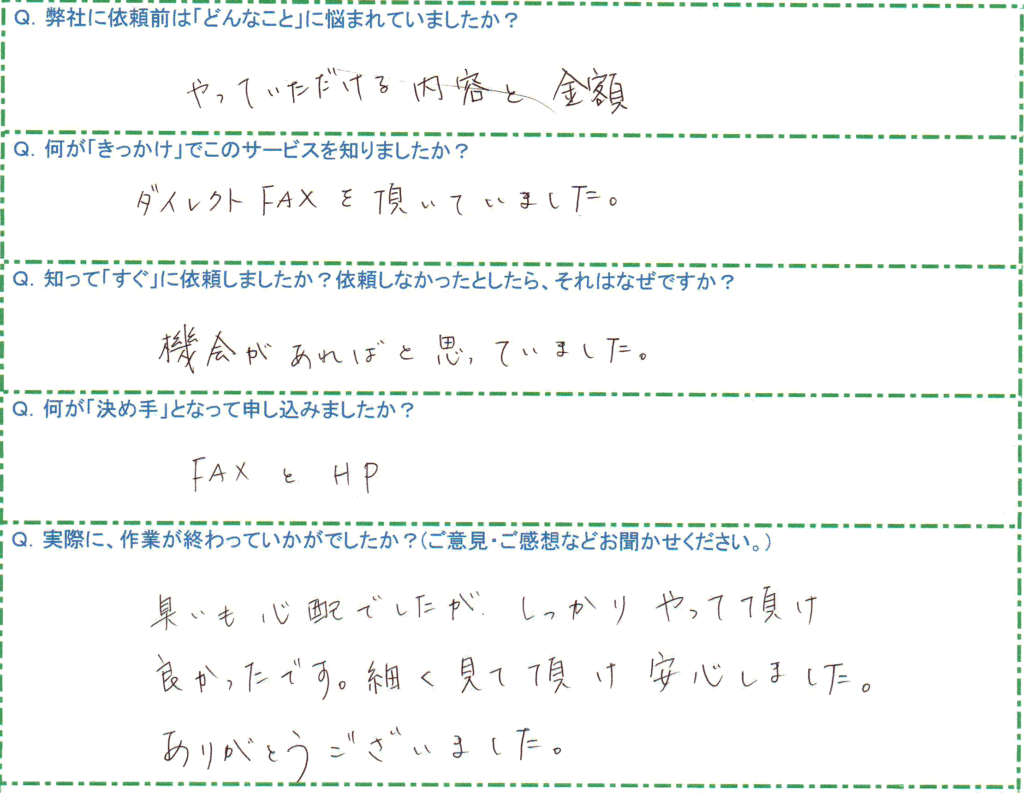 Q. 弊社に依頼前は「どんなこと」に悩まれていましたか?
やっていただける内容と金額
Q. 何が「きっかけ」でこのサービスを知りましたか?
ダイレクトFAXを頂いていました。
Q. 知って「すぐ」に依頼しましたか?依頼しなかったとしたら、それはなぜですか?
機会があればと思っていました。
Q. 何が「決め手」となって申し込みましたか?
FAXとHP
Q. 実際に、作業が終わっていかがでしたか?(ご意見・ご感想などお聞かせください。)
臭いも心配でしたが、しっかりやって頂け
良かったです。細く見て頂け安心しました。
ありがとうございました。